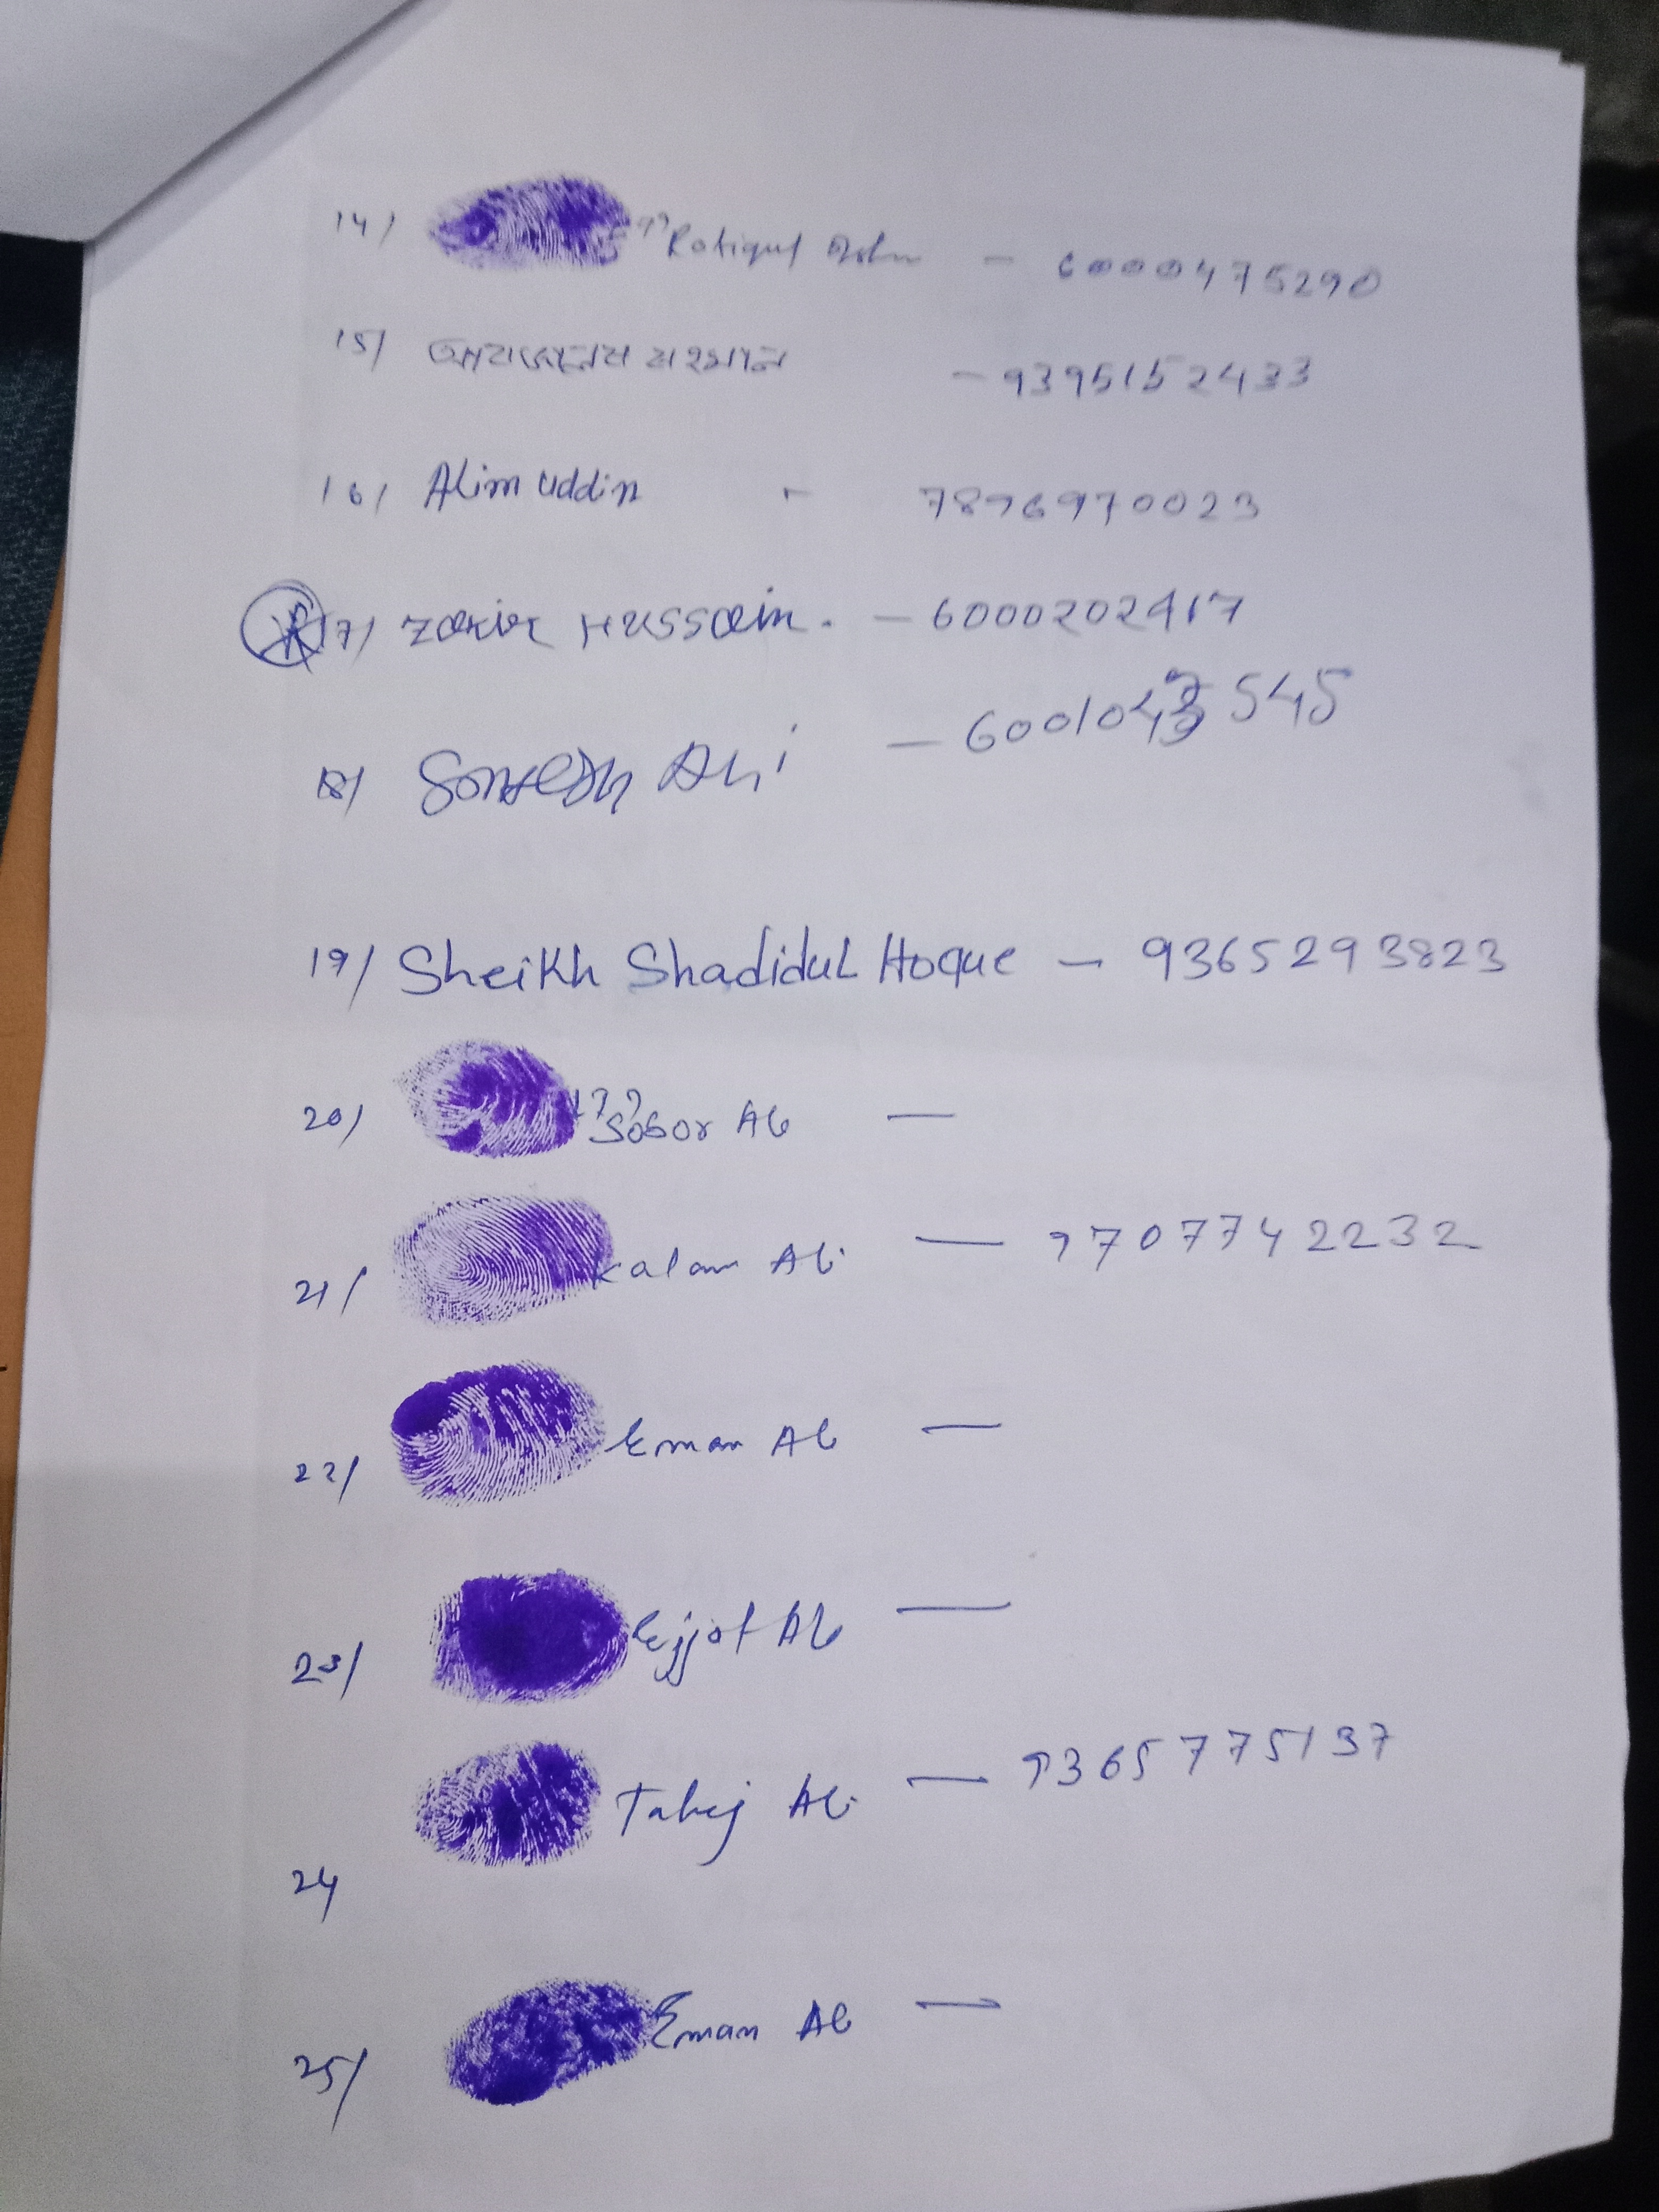 14/ Rafiqul - 6000475290
15/ - 9395152433
16/ Alim uddin - 7896970023
17/ Zakir Hussain. - 6000202417
18/ Ali - 6001043545
19/ Sheikh Shadidul Hoque - 9365293823
20/ Sobor Ali -
21/ Kalam Ali - 9707742232
22/ Eman Ali -
23/ Ejjot Ali -
24 Ali - 9365775137
25/ Eman Ali -